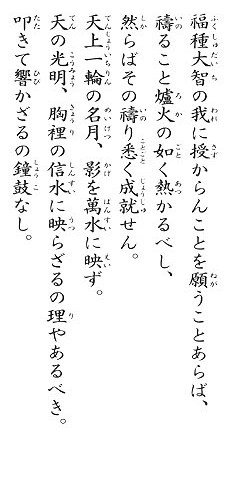 福種大智の我に授からんことを願うことあらば、
禱ること爐火の如く熱かるべし、
然らばその禱り悉く成就せん。
天上一輪の名月、影を萬水に映ず。
天の光明、胸裡の信水に映らざるの理やあるべき。
叩きて響かざるの鐘鼓なし。